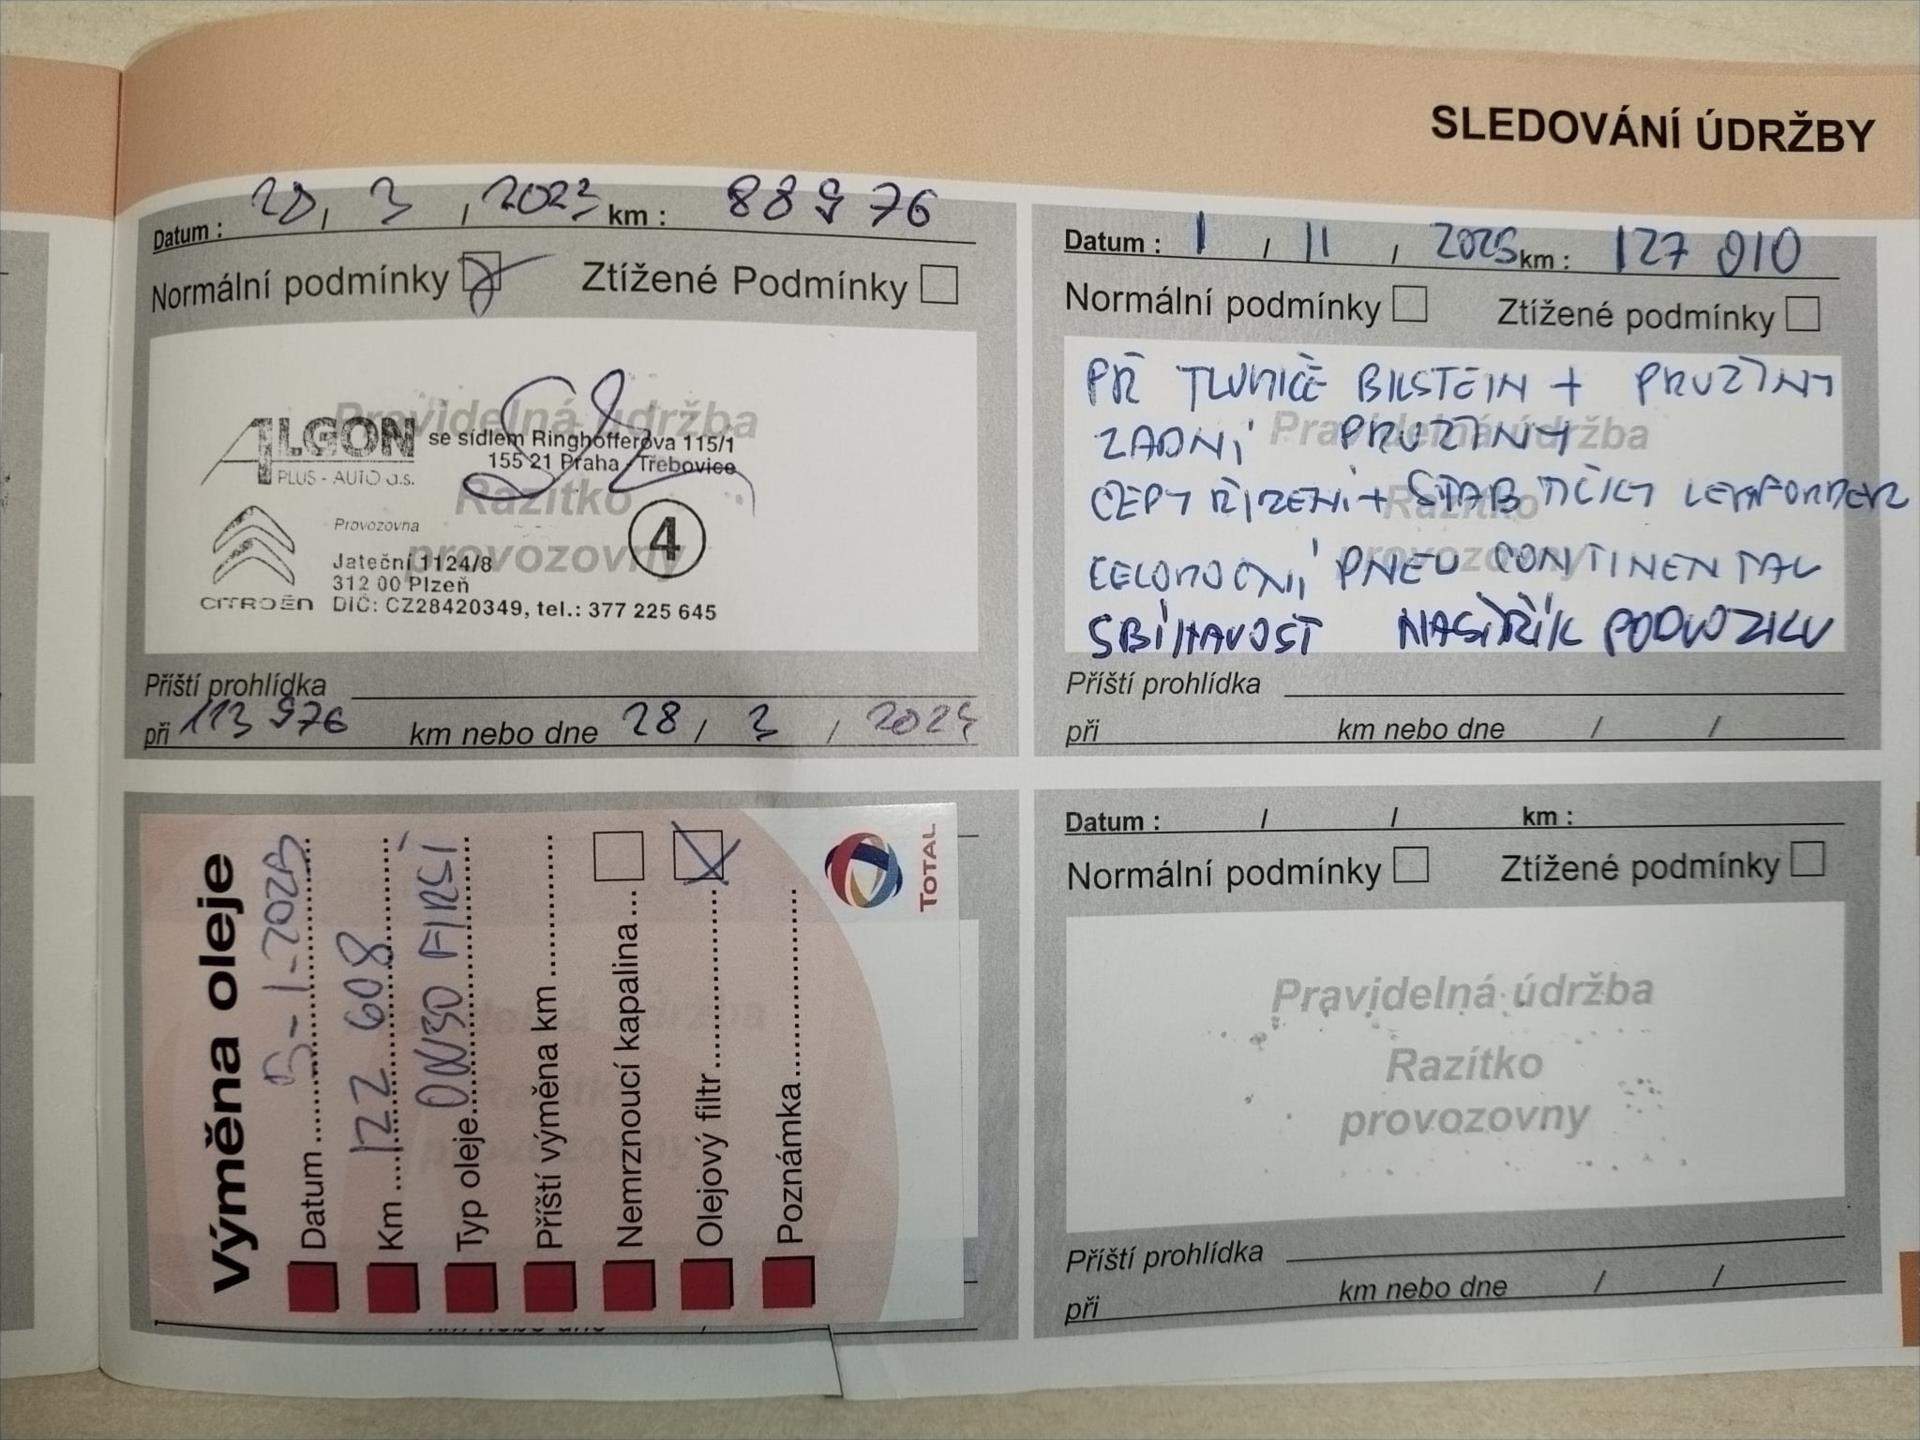 SLEDOVÁNÍ ÚDRŽBY
Datum : 28, 3, 2023 km : 88976
Normální podmínky Ztížené Podmínky
Pravidelná údržba
Razítko
provozovny
ALGON
PLUS - AUTO a.s.
se sídlem Ringhofferova 115/1
155 21 Praha - Třebovice
4
Provozovna
Jateční 1124/8
312 00 Plzeň
CITROËN DIČ: CZ28420349, tel.: 377 225 645
Příští prohlídka
při 113 976 km nebo dne 28 / 3 / 2024
Datum : 1 / 11 / 2025 km : 127 010
Normální podmínky Ztížené podmínky
Pravidelná údržba
Razítko
provozovny
PŘ TLUMIČE BILSTEIN + PRUŽINY
ZADNÍ PRUŽINY
ČEPY ŘÍZENÍ + STAB TYČKY LEMFORDER
CELOROČNÍ PNEU CONTINENTAL
SBÍHAVOST NÁSTŘIK PODVOZKU
Příští prohlídka
při km nebo dne / /
Výměna oleje
Datum 1-2025
Km 122 608
Typ oleje 0W30 FIRST
Příští výměna km
Nemrznoucí kapalina
Olejový filtr
Poznámka
TOTAL
Datum : / / km :
Normální podmínky Ztížené podmínky
Pravidelná údržba
Razítko
provozovny
Příští prohlídka
při km nebo dne / /